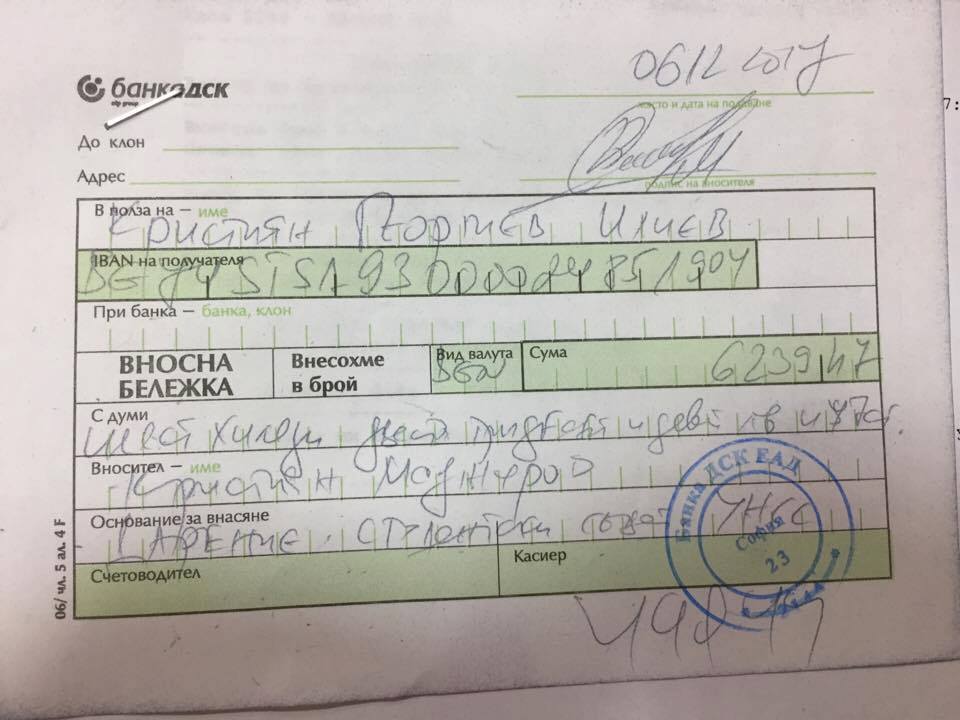 банка дск
otp group
06122017
място и дата на подаване
До клон
Адрес
подпис на вносителя
В полза на – име
Кристиян Георгиев Илиев
IBAN на получателя
При банка – банка, клон
ВНОСНА БЕЛЕЖКА
Внесохме в брой
Вид валута
BGN
Сума
6239,47
С думи
шест хиляди двеста тридесет и девет лв и 47 ст.
Вносител – име
Кристиян
Основание за внасяне
Дарение. Студентски съвет УНСС
Счетоводител
Касиер
Банка ДСК ЕАД
София
23
06/ чл. 5 ал. 4 F